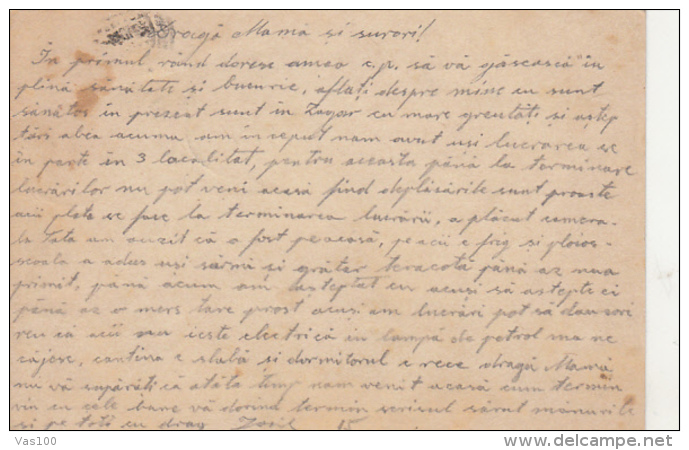 Dragă Mamă și surori!
În primul rând doresc amea c.p. să vă găsească în
plină sănătate și bucurie, aflați despre mine cu sunt
sănătos în prezent sunt în Zagar cu mare greutăți și aștep
tări abea acuma am început nam avut uși lucrarea se
în parte în 3 localităt, pentru aceasta până la terminare
lucrărilor nu pot veni acasă fiind deplasările sunt proaste
aici plata se face la terminarea lucrării, a plăcut camera-
la tata am auzit că a fost pe acasă, pe aici e frig și ploios-
scoala a adus uși sârmă și grătar teracotă până az nua
primit, până acum am așteptat eu acuși să aștepte ei
până az o mers tare prost acuși am lucrări pot să dau zori
reu că aici nu ieste electrică în lampă de petrol ma ne
căjesc, cantina e slabă și dormitorul e rece dragă Mamă
nu vă supărăți că atâta timp nam venit acasă cum termin
vin cu cele bune vă dorind termin scrisul sărut manurile
și pe toti cu drag
Vas100
www.delcampe.net